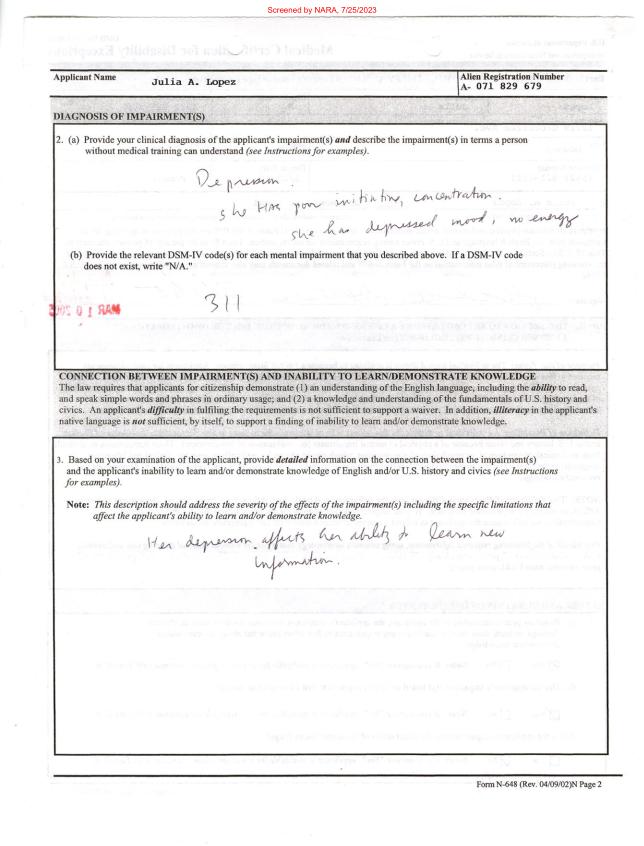 Screened by NARA, 7/25/2023
Applicant Name
Julia A. Lopez
Alien Registration Number
A- 071 829 679
DIAGNOSIS OF IMPAIRMENT(S)
2. (a) Provide your clinical diagnosis of the applicant's impairment(s) and describe the impairment(s) in terms a person
without medical training can understand (see Instructions for examples).
Depression.
she has poor initiating, concentration.
she has depressed mood, no energy
(b) Provide the relevant DSM-IV code(s) for each mental impairment that you described above. If a DSM-IV code
does not exist, write "N/A."
311
MAR 0 1
CONNECTION BETWEEN IMPAIRMENT(S) AND INABILITY TO LEARN/DEMONSTRATE KNOWLEDGE
The law requires that applicants for citizenship demonstrate (1) an understanding of the English language, including the ability to read,
and speak simple words and phrases in ordinary usage; and (2) a knowledge and understanding of the fundamentals of U.S. history and
civics. An applicant's difficulty in fulfiling the requirements is not sufficient to support a waiver. In addition, illiteracy in the applicant's
native language is not sufficient, by itself, to support a finding of inability to learn and/or demonstrate knowledge.
3. Based on your examination of the applicant, provide detailed information on the connection between the impairment(s)
and the applicant's inability to learn and/or demonstrate knowledge of English and/or U.S. history and civics (see Instructions
for examples).
Note: This description should address the severity of the effects of the impairment(s) including the specific limitations that
affect the applicant's ability to learn and/or demonstrate knowledge.
Her depression affects her ability to learn new
information.
Form N-648 (Rev. 04/09/02)N Page 2